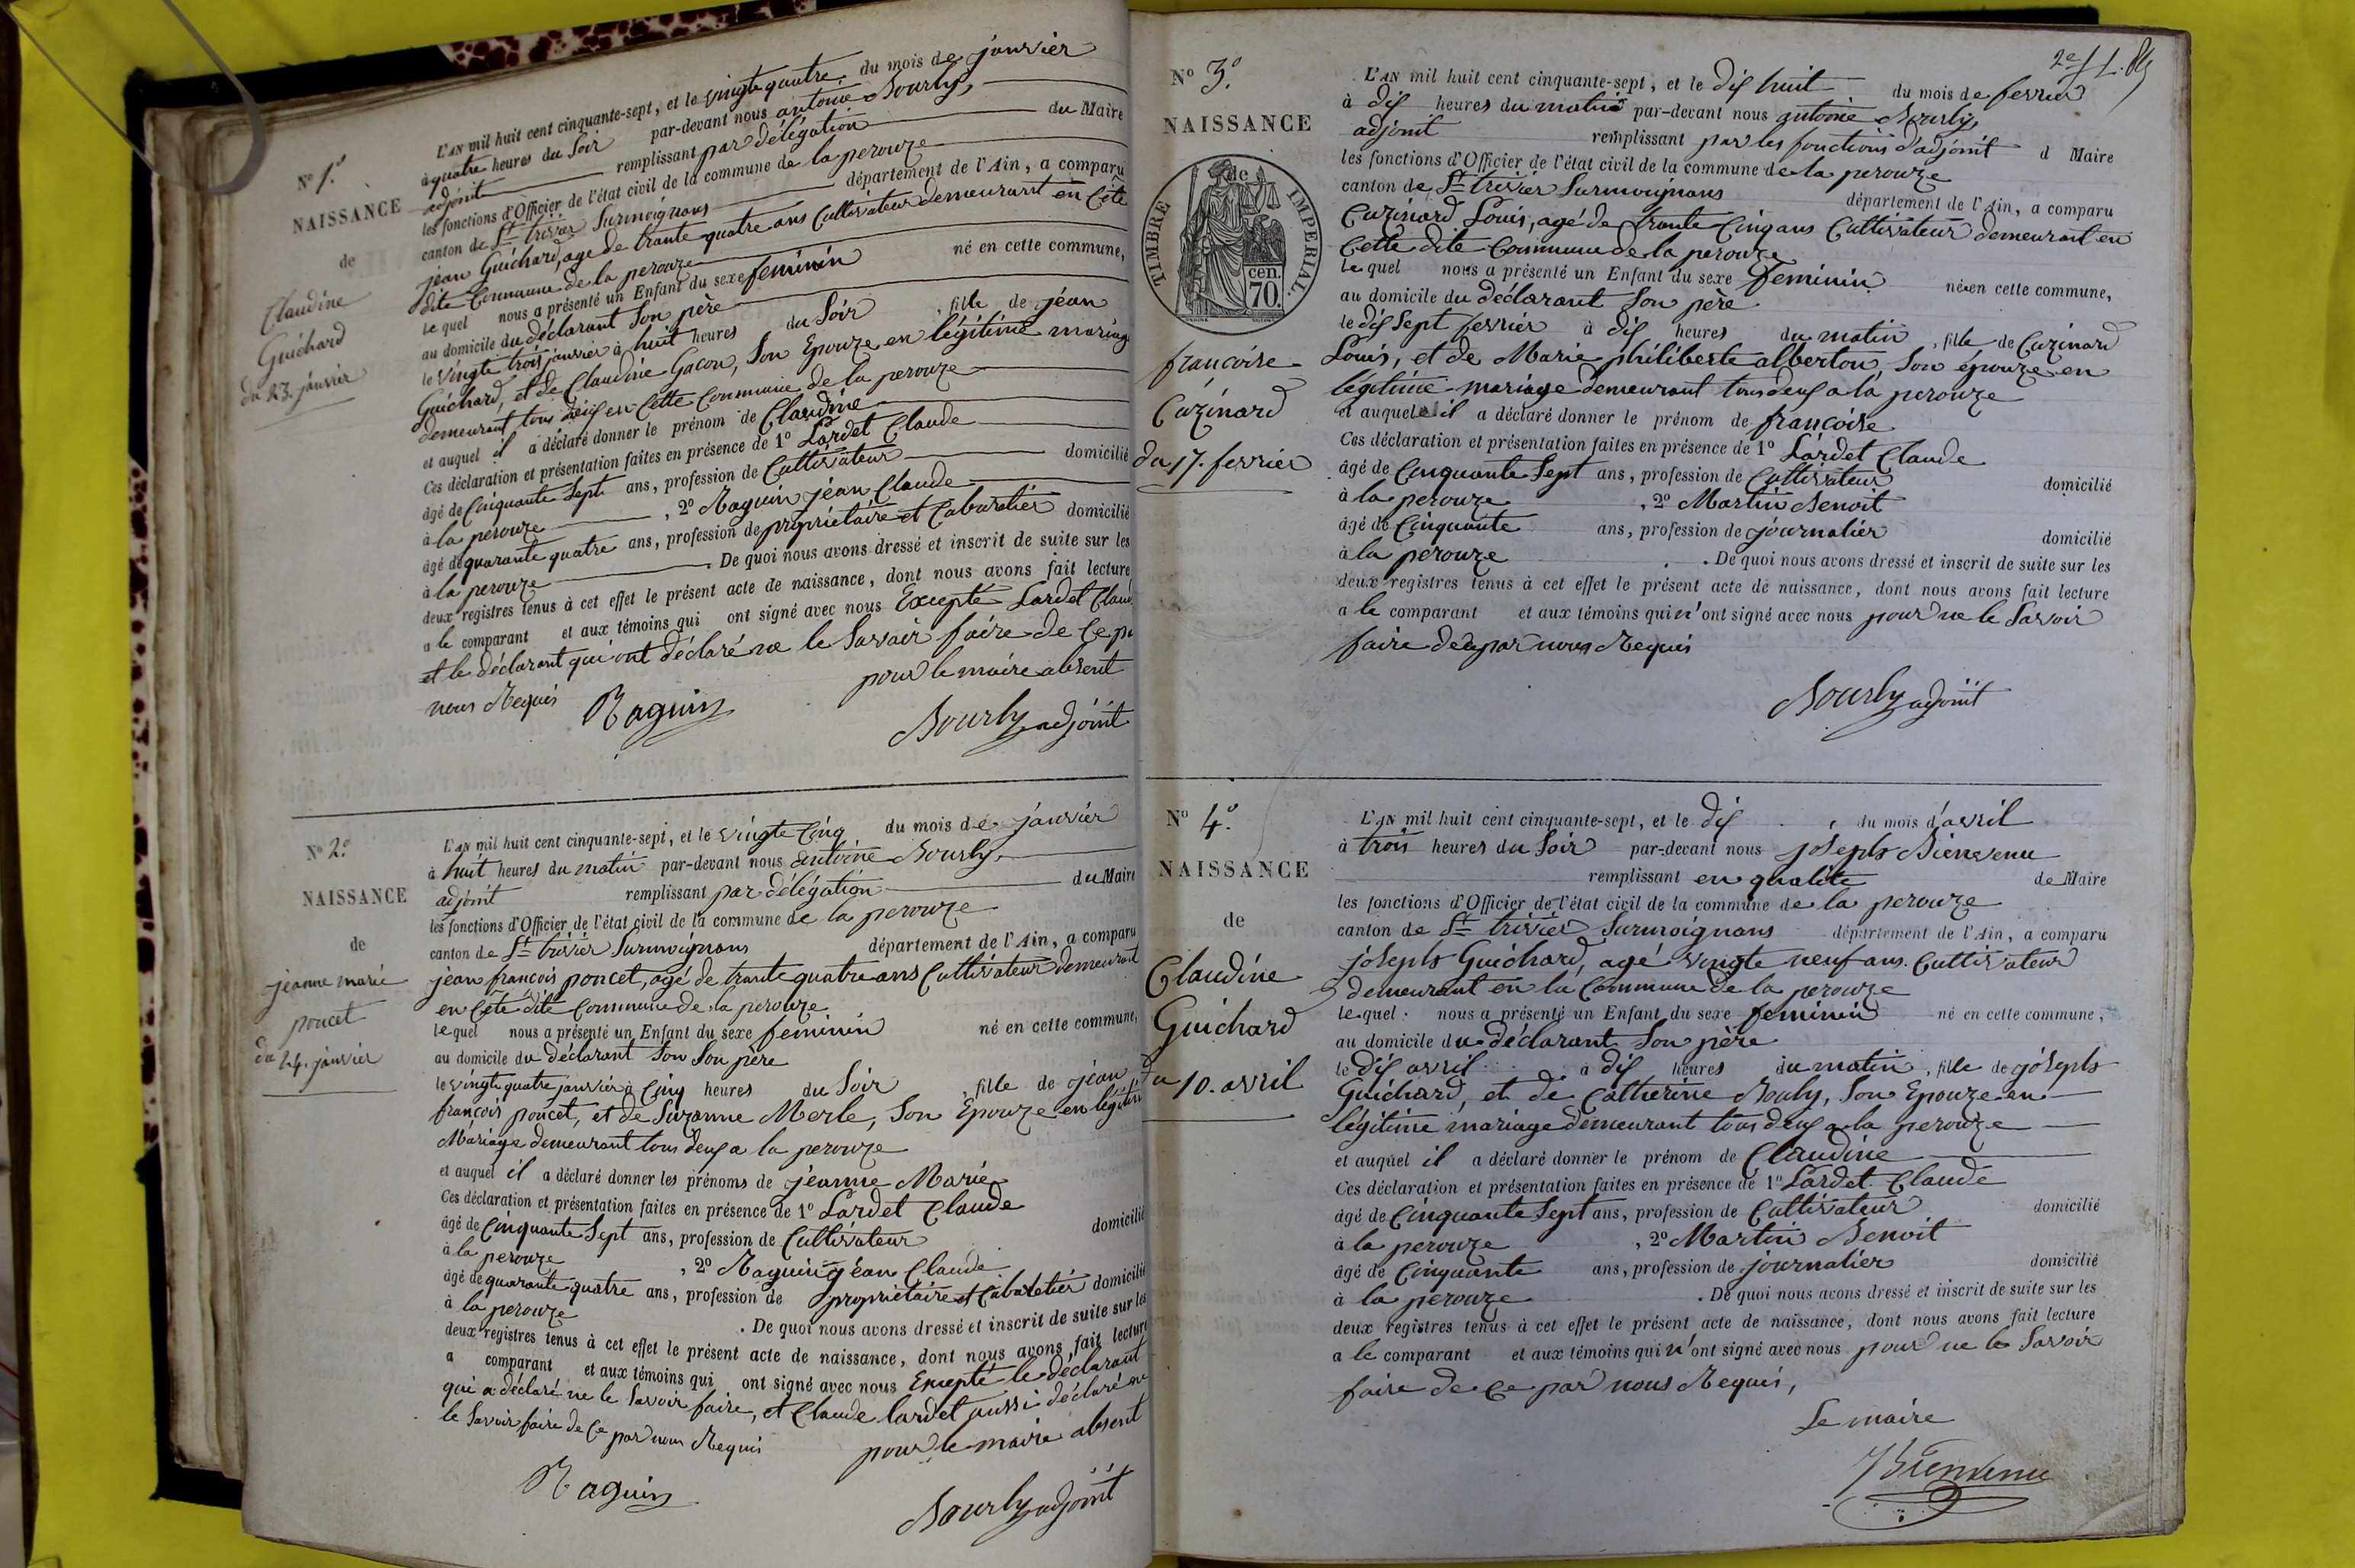 N° 1.°
NAISSANCE
de
Claudine
Guichard
du 23. janvier
L'AN mil huit cent cinquante-sept, et le vingte quatre du mois de janvier
à quatre heures du soir par-devant nous antoine Bourly
adjoint remplissant par délégation du Maire
les fonctions d'Officier de l'état civil de la commune de la perouze
canton de St trivier Surmoignans département de l'Ain, a comparu
jean Guichard, age de trante quatre ans Cultivateur demeurant en Cête
dite Commune de la perouze
lequel nous a présenté un Enfant du sexe feminin né en cette commune,
au domicile du déclarant Son père
le vingte trois janvier à huit heures du Soir , fille de jéan
Guichard, et de Claudine Gacon, Son Epouze en légitime mariage
demeurant tous deuf en Cette Commune de la perouze
et auquel il a déclaré donner le prénom de Claudine
Ces déclaration et présentation faites en présence de 1° Lardet Claude
âgé de Cinquante Sept ans, profession de Cultivateur domicilié
à la perouze , 2° Raguin jéan Claude
âgé de quarante quatre ans, profession de propriétaire et Cabaretier domicilié
à la perouze . De quoi nous avons dressé et inscrit de suite sur les
deux registres tenus à cet effet le présent acte de naissance, dont nous avons fait lecture
a le comparant et aux témoins qui ont signé avec nous Excepté Lardet Claud
et le déclarant qui ont déclaré ne le Savoir faire de Ce p
nous Requis
pour le maire absent
Raguin
Bourly adjoint
N° 2.°
NAISSANCE
de
jeanne marie
poncet
du 24. janvier
L'AN mil huit cent cinquante-sept, et le vingte Cinq du mois de janvier
à huit heures du matin par-devant nous antoine Bourly
adjoint remplissant par délégation du Maire
les fonctions d'Officier de l'état civil de la commune de la perouze
canton de St trivier Surmoignans département de l'Ain, a comparu
jean françois poncet, agé de trante quatre ans Cultivateur demeurant
en Cête dite Commune de la perouze
lequel nous a présenté un Enfant du sexe feminin né en cette commune,
au domicile du déclarant Son Son père
le vingte quatre janvier à Cinq heures du Soir , fille de jéan
françois poncet, et de Suzanne Merle, Son Epouze en légitim
Mariage demeurant tous deuf a la perouze
et auquel il a déclaré donner les prénoms de jéanne Marie
Ces déclaration et présentation faites en présence de 1° Lardet Claude
âgé de Cinquante Sept ans, profession de Cultivateur domicilié
à la perouze , 2° Raguin jéan Claude
âgé de quarante quatre ans, profession de propriétaire et Cabaretier domicilié
à la perouze . De quoi nous avons dressé et inscrit de suite sur les
deux registres tenus à cet effet le présent acte de naissance, dont nous avons fait lecture
a comparant et aux témoins qui ont signé avec nous Excepté le déclarant
qui a déclaré ne le Savoir faire, et Claude lardet aussi déclaré ne
le Savoir faire de Ce par nous Requis
pour le maire absent
Raguin
Bourly adjoint
N° 3.°
NAISSANCE
de
TIMBRE IMPERIAL
70. cen.
françoise
Cuzinard
du 17. fevrier
L'AN mil huit cent cinquante-sept, et le dif huit du mois de fevrier
à dif heures du matin par-devant nous antoine Bourly
adjoint remplissant par les fonctions d'adjoint d Maire
les fonctions d'Officier de l'état civil de la commune de la perouze
canton de St trivier Surmoignans département de l'Ain, a comparu
Cuzinard Louis, agé de trante Cinq ans Cultivateur demeurant en
Cette dite Commune de la perouze
lequel nous a présenté un Enfant du sexe feminin né en cette commune,
au domicile du déclarant Son père
le dif Sept fevrier à dif heures du matin , fille de Cuzinard
Louis, et de Marie philiberte alberton, Son épouze en
légitime mariage demeurant tous deuf a la perouze
et auquel il a déclaré donner le prénom de françoise
Ces déclaration et présentation faites en présence de 1° Lardet Claude
âgé de Cinquante Sept ans, profession de Cultivateur domicilié
à la perouze , 2° Martin Benoit
âgé de Cinquante ans, profession de journalier domicilié
à la perouze . De quoi nous avons dressé et inscrit de suite sur les
deux registres tenus à cet effet le présent acte de naissance, dont nous avons fait lecture
a le comparant et aux témoins qui n'ont signé avec nous pour ne le Savoir
faire de ce par nous Requis
Bourly adjoint
N° 4.°
NAISSANCE
de
Claudine
Guichard
du 10. avril
L'AN mil huit cent cinquante-sept, et le dif du mois d'avril
à trois heures du Soir par-devant nous joseph Bienvenu
remplissant en qualité de Maire
les fonctions d'Officier de l'état civil de la commune de la perouze
canton de St trivier Surmoignans département de l'Ain, a comparu
joseph Guichard, agé vingte neuf ans Cultivateur
demeurant en la Commune de la perouze
lequel nous a présenté un Enfant du sexe feminin né en cette commune,
au domicile du déclarant Son père
le dif avril à dif heures du matin , fille de joseph
Guichard, et de Catherine Bouly, Son Epouze en
légitime mariage demeurant tous deuf a la perouze
et auquel il a déclaré donner le prénom de Claudine
Ces déclaration et présentation faites en présence de 1° Lardet Claude
âgé de Cinquante Sept ans, profession de Cultivateur domicilié
à la perouze , 2° Martin Benoit
âgé de Cinquante ans, profession de journalier domicilié
à la perouze . De quoi nous avons dressé et inscrit de suite sur les
deux registres tenus à cet effet le présent acte de naissance, dont nous avons fait lecture
a le comparant et aux témoins qui n'ont signé avec nous pour ne le Savoir
faire de Ce par nous Requis,
Le maire
Bienvenu